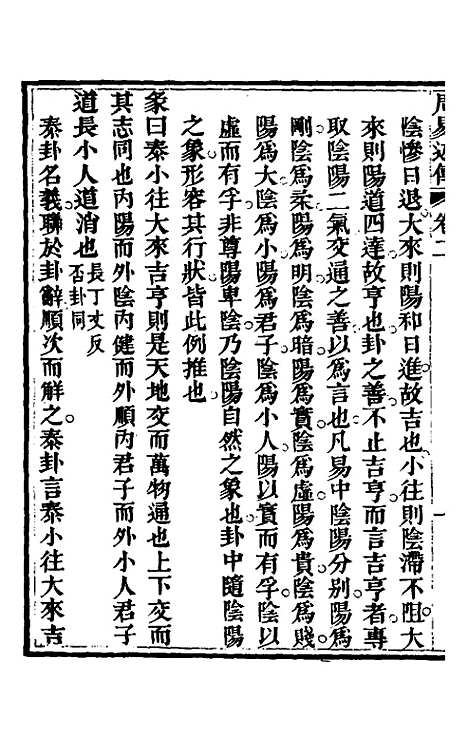 周易述傳 卷二 一
陰慘日退大來則陽和日進故吉也小往則陰滯不阻大
來則陽道四達故亨也卦之善不止吉亨而言吉亨者專
取陰陽二氣交通之善以為言也凡易中陰陽分别陽為
剛陰為柔陽為明陰為暗陽為實陰為虛陽為貴陰為賤
陽為大陰為小陽為君子陰為小人陽以實而有孚陰以
虛而有孚非尊陽卑陰乃陰陽自然之象也卦中隨陰陽
之象形容其行狀皆此例推也
彖曰泰小往大來吉亨則是天地交而萬物通也上下交而
其志同也內陽而外陰內健而外順內君子而外小人君子
道長小人道消也長丁丈反否卦同
泰卦名義聯於卦辭順次而解之泰卦言泰小往大來吉